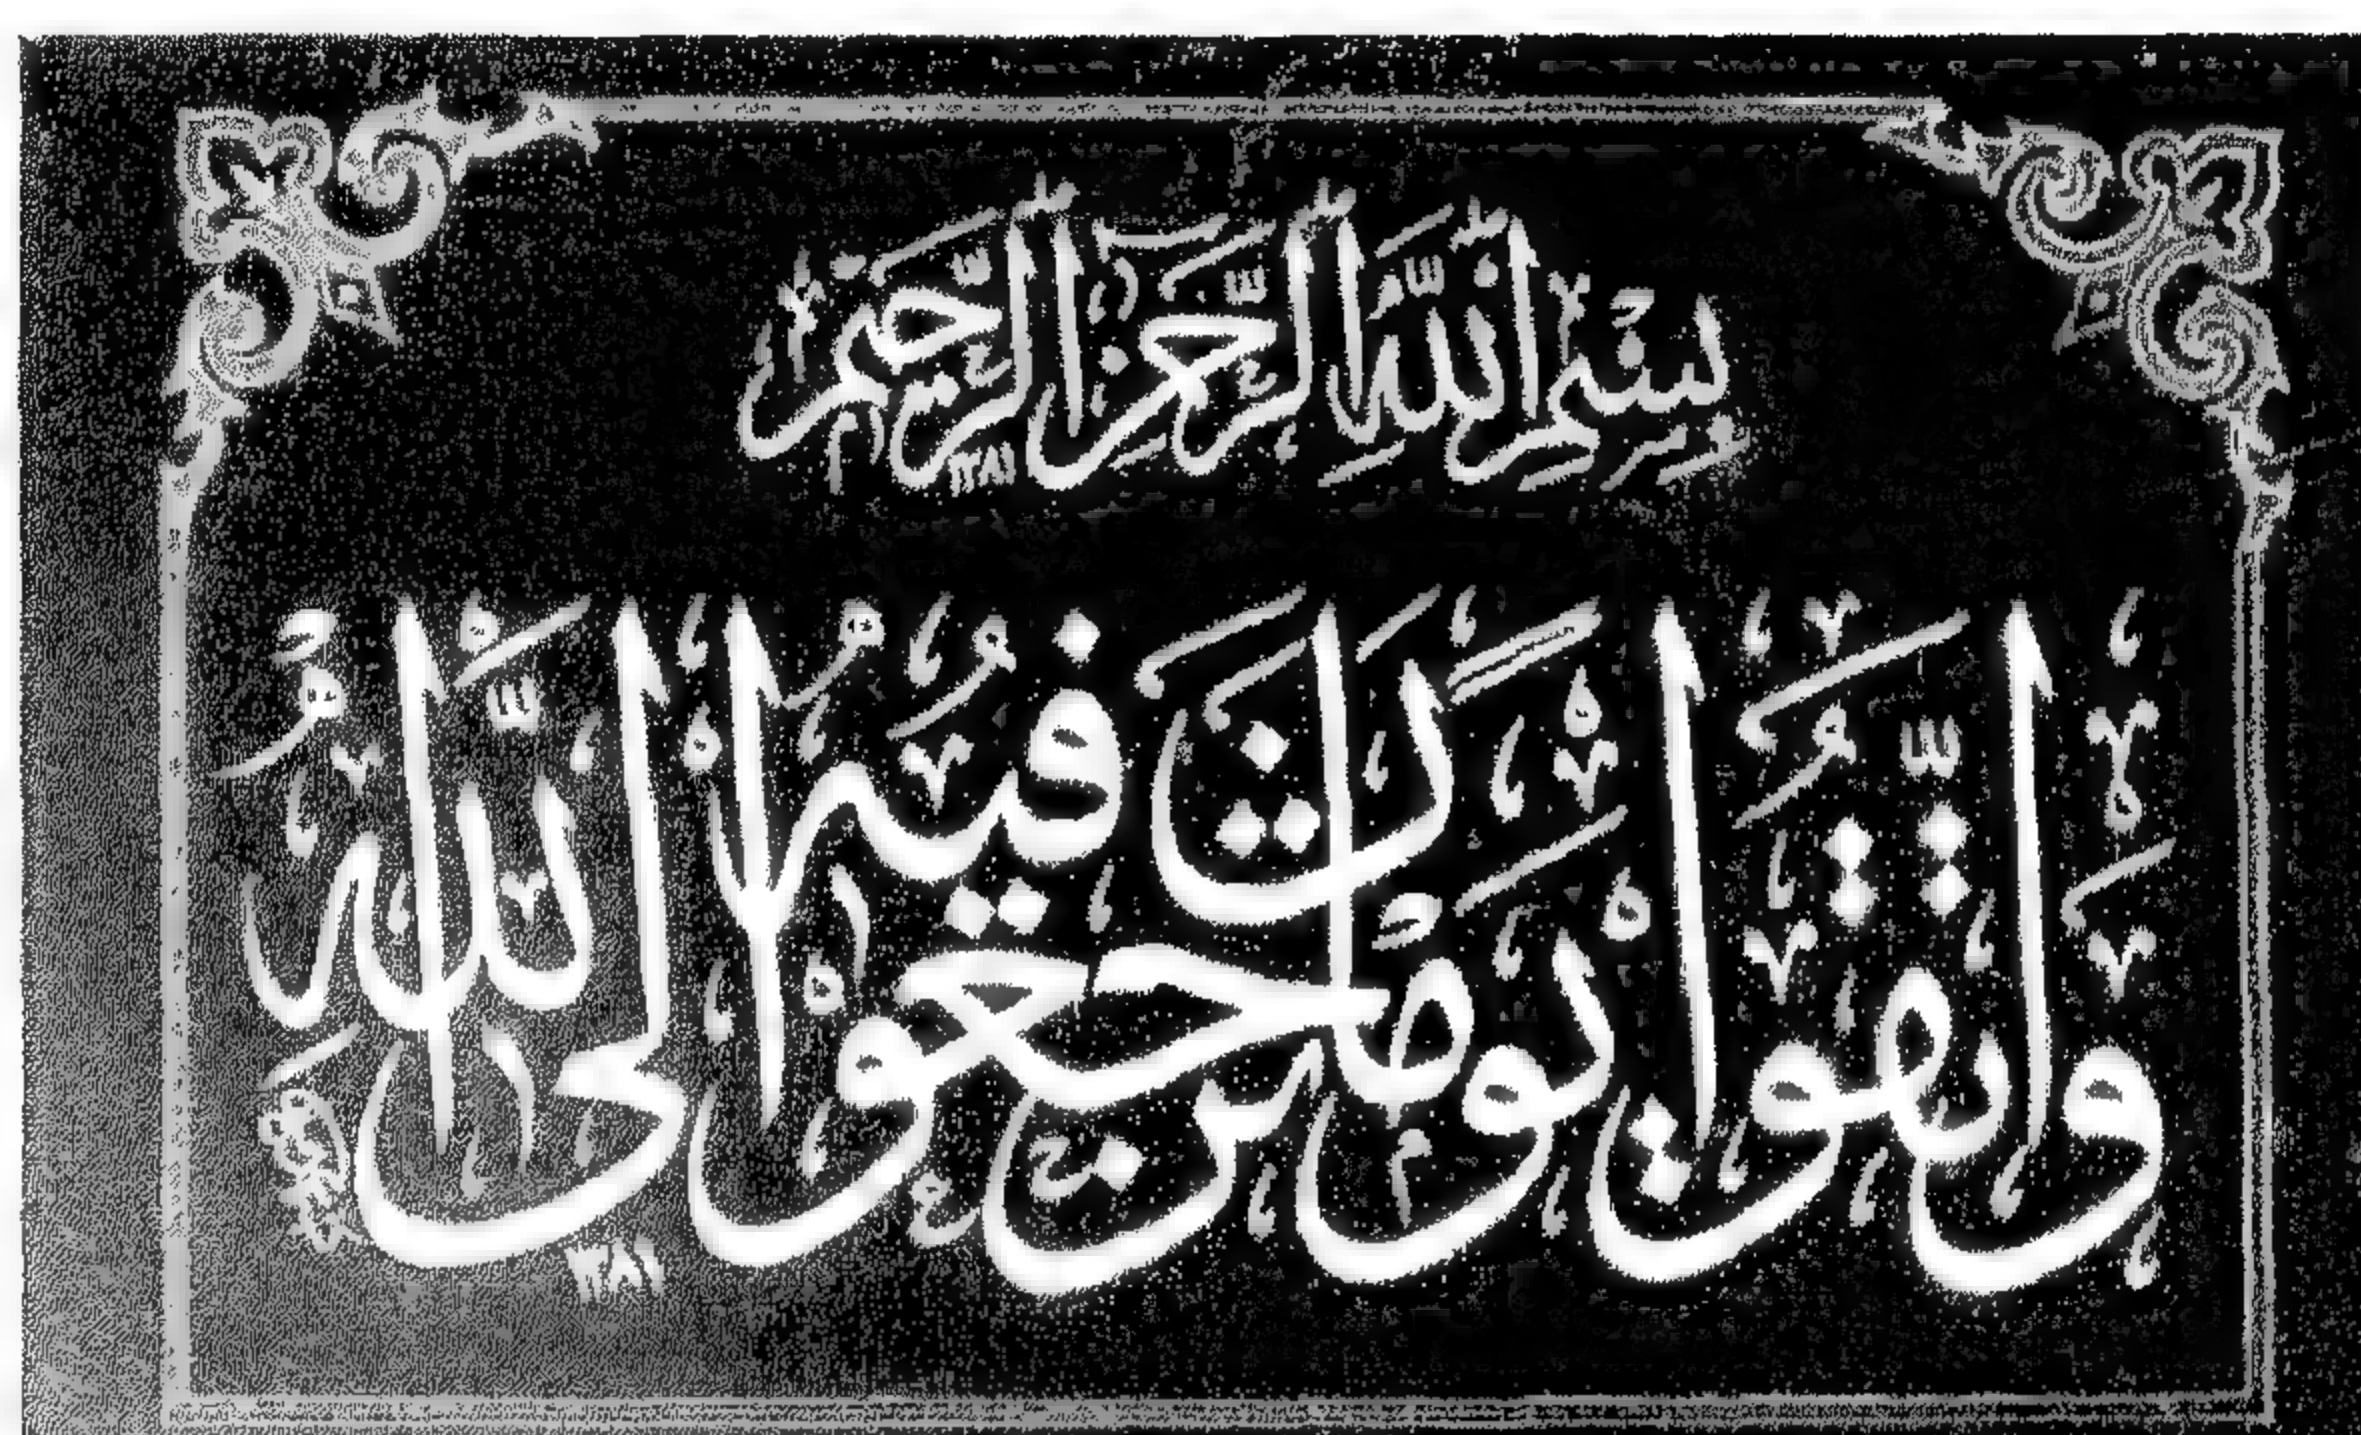 بِسْمِ اللهِ الرَّحْمٰنِ الرَّحِيمِ
وَاتَّقُوا يَوْمًا تُرْجَعُونَ فِيهِ إِلَى اللهِ